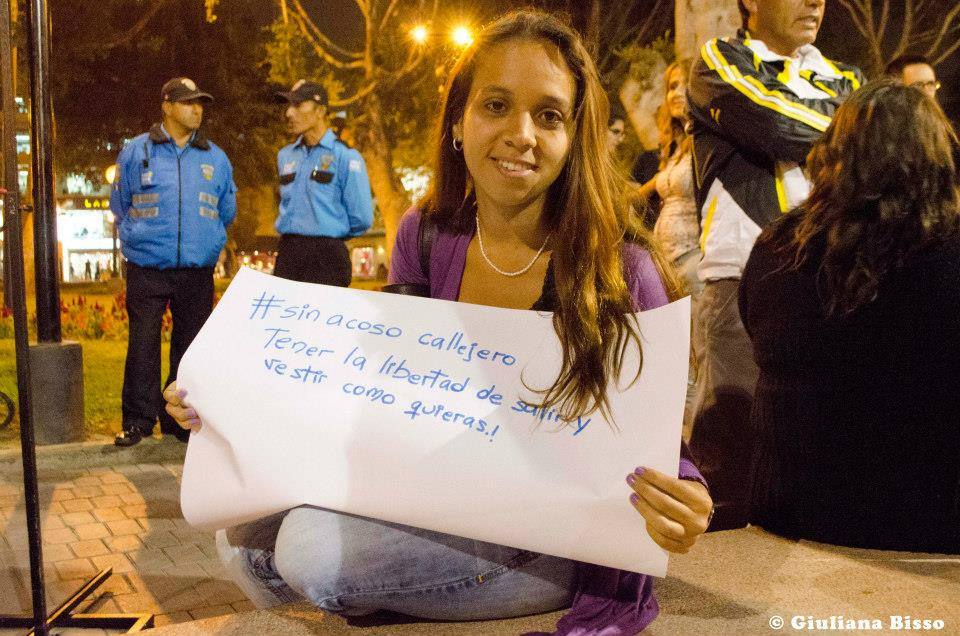 #sin acoso callejero
Tener la libertad de salir y
vestir como quieras.!
© Giuliana Bisso